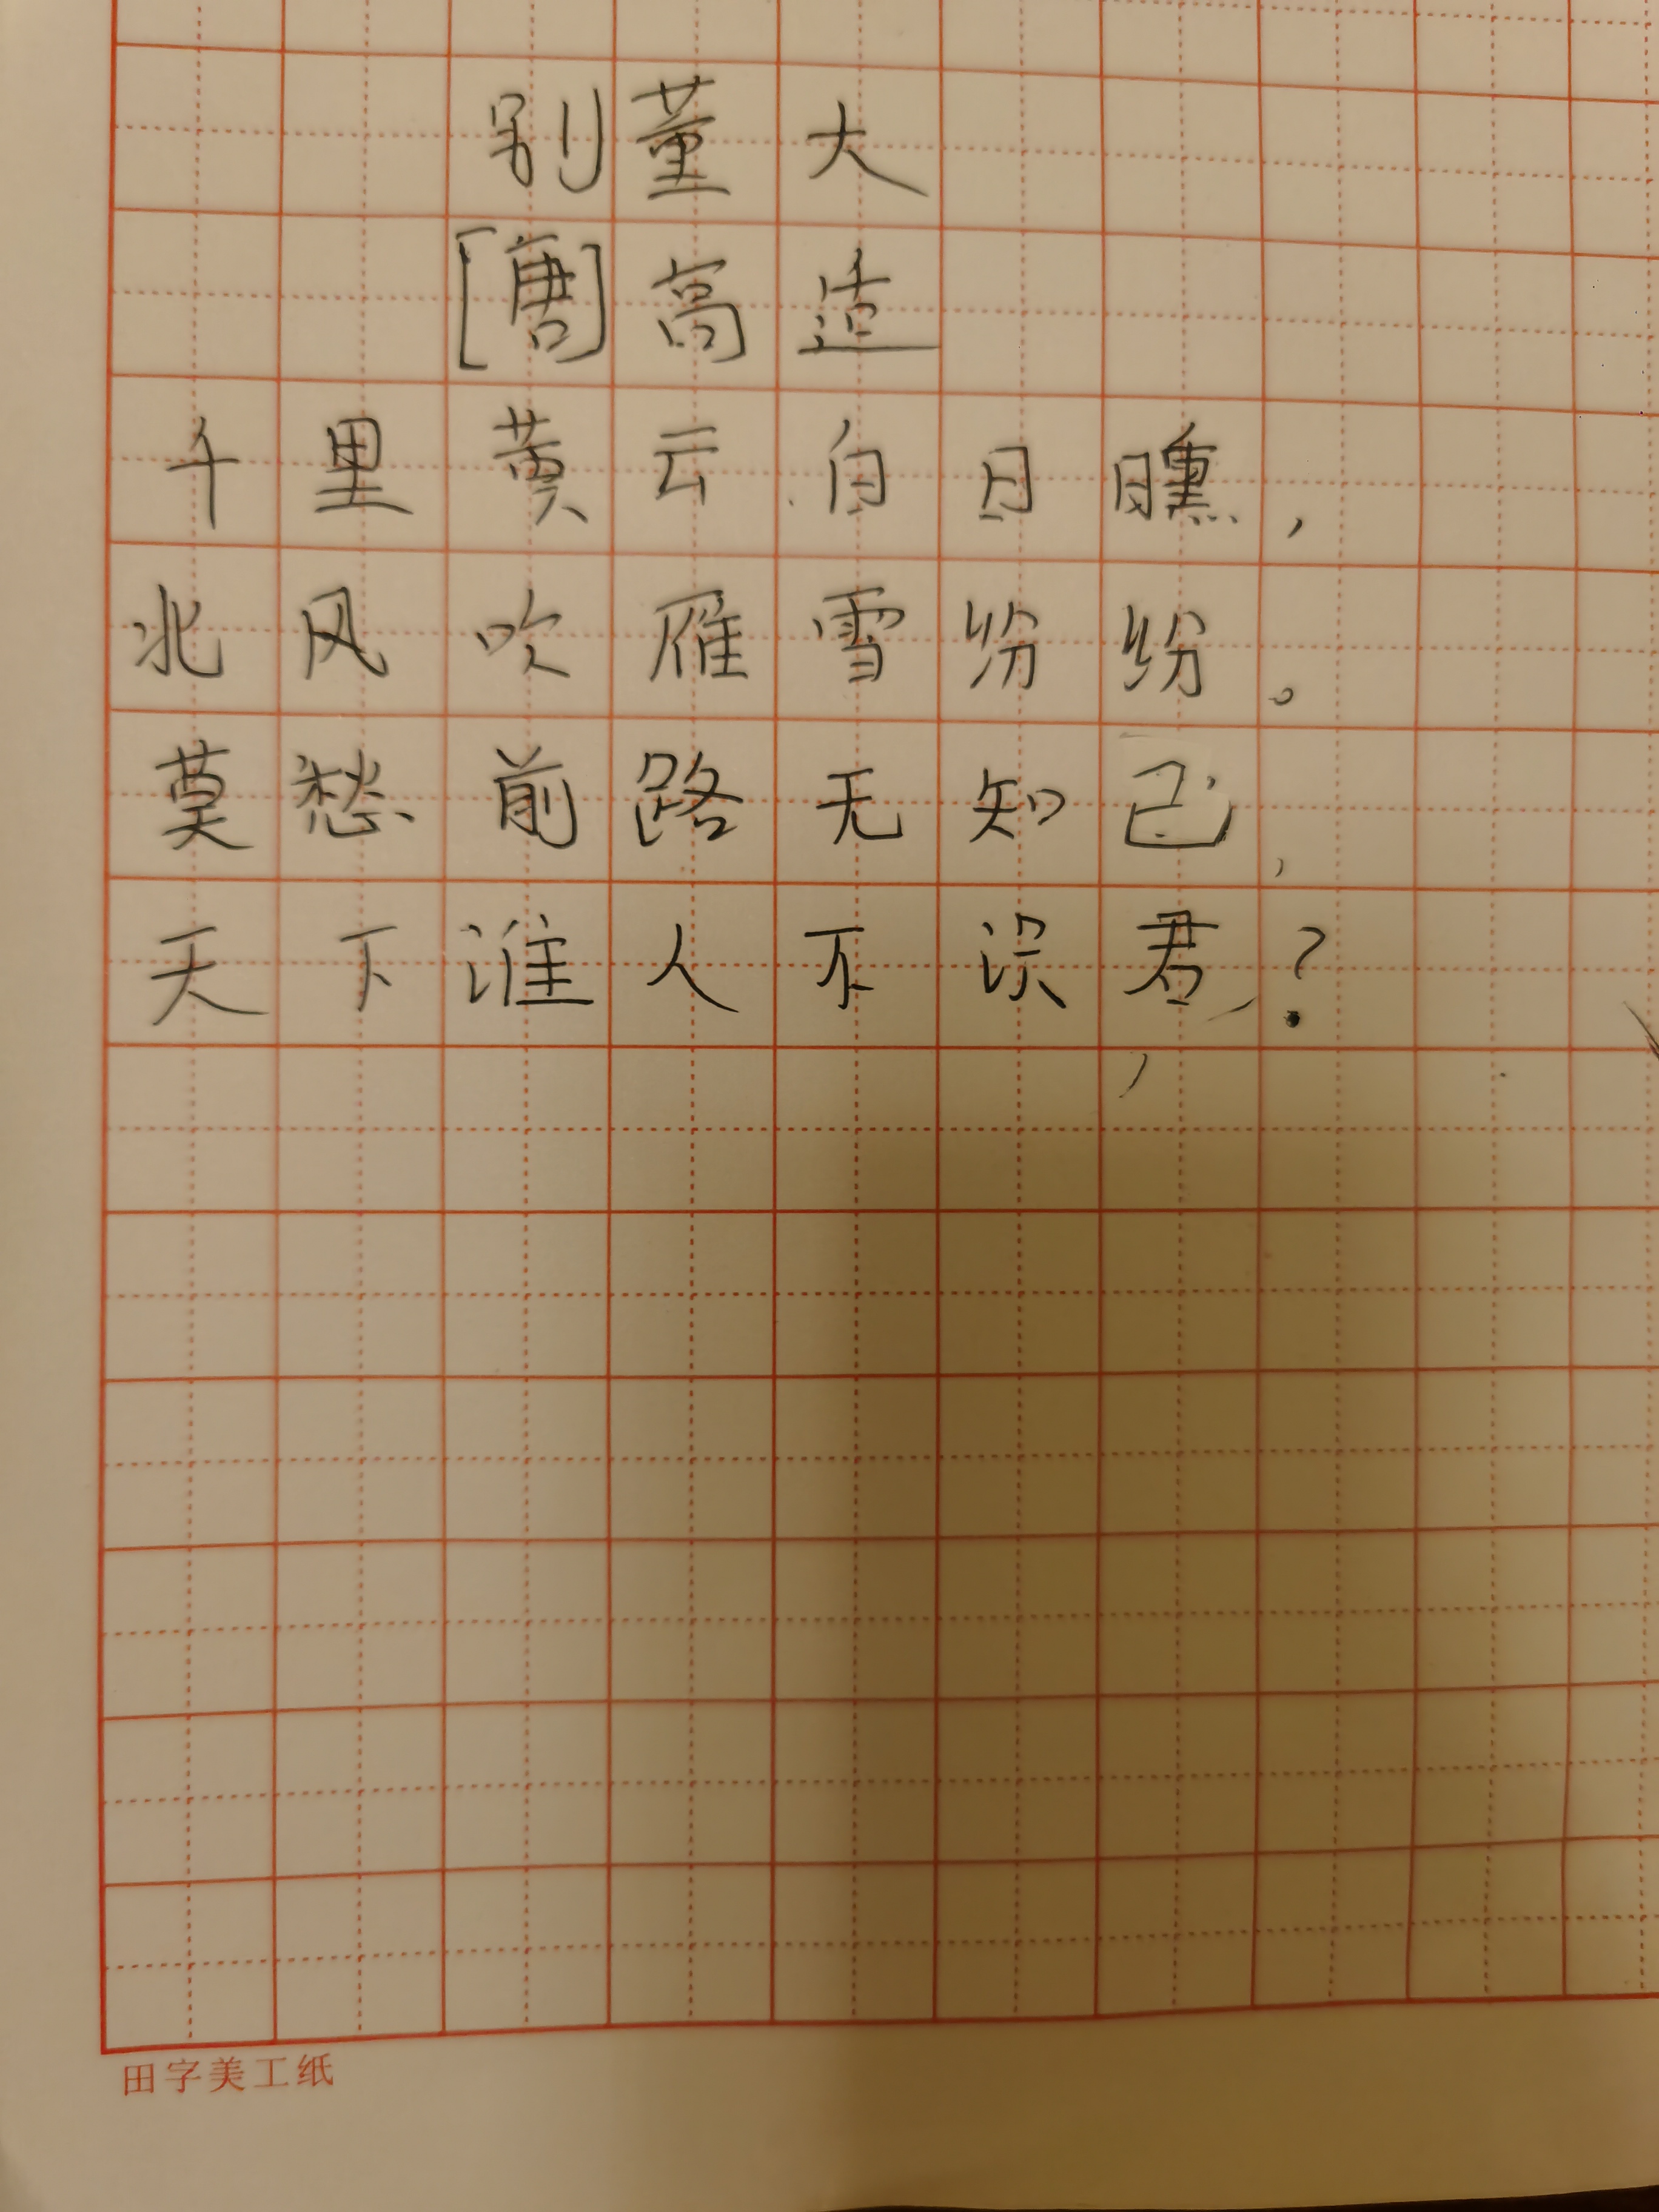 别董大
[唐]高适
千里黄云白日曛，
北风吹雁雪纷纷。
莫愁前路无知己，
天下谁人不识君？
田字美工纸